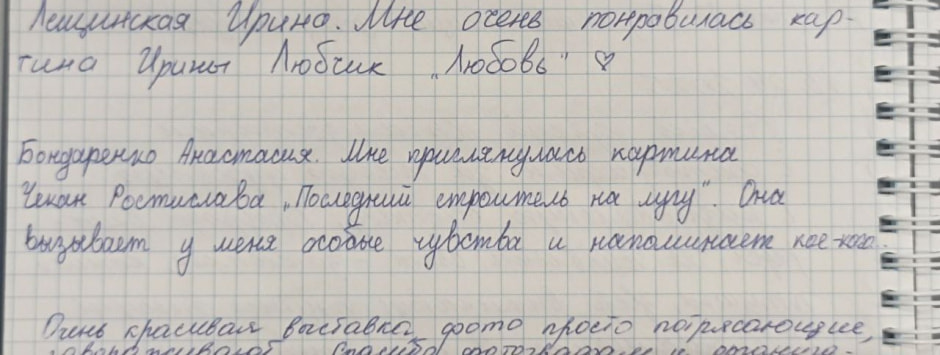 Лещинская Ирина. Мне очень понравилась кар-
тина Ирины Любчик „Любовь" ♡
Бондаренко Анастасия. Мне приглянулась картина
Чекан Ростислава „Последний строитель на лугу". Она
вызывает у меня особые чувства и напоминает кое-кого.
Очень красивая выставка, фото просто потрясающие,
завораживают. Спасибо фотографам и организа-